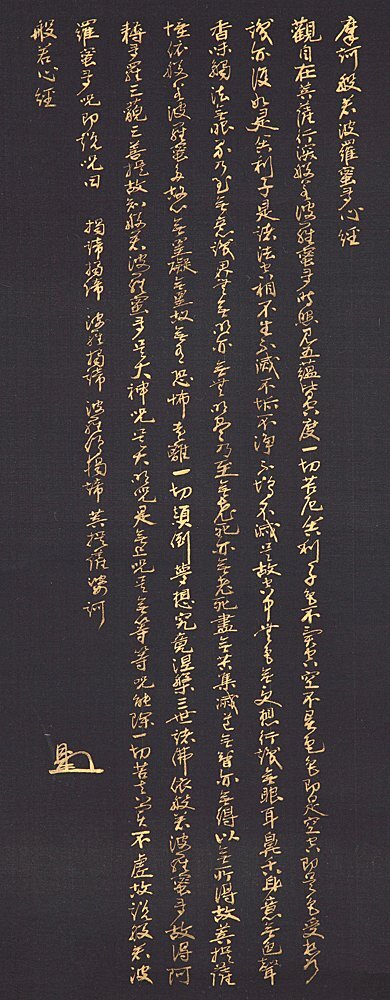 摩訶般若波羅蜜多心経
觀自在菩薩行深般若波羅蜜多時照見五蘊皆空度一切苦厄舎利子色不異空空不異色色即是空空即是色受想行
識亦復如是舎利子是諸法空相不生不滅不垢不浄不増不減是故空中無色無受想行識無眼耳鼻舌身意無色聲
香味觸法無眼界乃至無意識界無無明亦無無明盡乃至無老死亦無老死盡無苦集滅道無智亦無得以無所得故菩提薩
埵依般若波羅蜜多故心無罣礙無罣礙故無有恐怖遠離一切顛倒夢想究竟涅槃三世諸佛依般若波羅蜜多故得阿
耨多羅三藐三菩提故知般若波羅蜜多是大神呪是大明呪是無上呪是無等等呪能除一切苦真実不虚故説般若波
羅蜜多呪即説呪曰 掲諦掲諦 波羅掲諦 波羅僧掲諦 菩提薩婆訶
般若心経